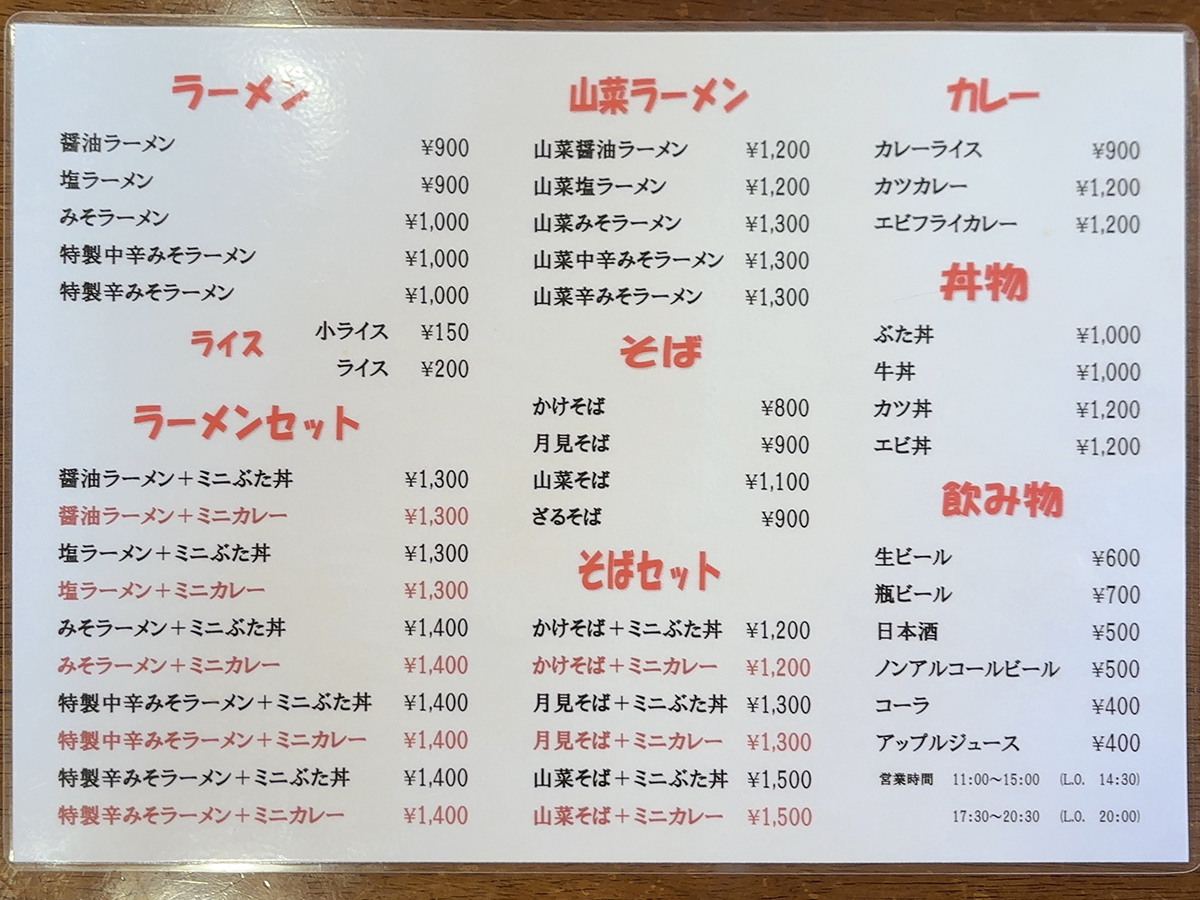 ラーメン
醤油ラーメン ¥900
塩ラーメン ¥900
みそラーメン ¥1,000
特製中辛みそラーメン ¥1,000
特製辛みそラーメン ¥1,000
ライス
小ライス ¥150
ライス ¥200
ラーメンセット
醤油ラーメン＋ミニぶた丼 ¥1,300
醤油ラーメン＋ミニカレー ¥1,300
塩ラーメン＋ミニぶた丼 ¥1,300
塩ラーメン＋ミニカレー ¥1,300
みそラーメン＋ミニぶた丼 ¥1,400
みそラーメン＋ミニカレー ¥1,400
特製中辛みそラーメン＋ミニぶた丼 ¥1,400
特製中辛みそラーメン＋ミニカレー ¥1,400
特製辛みそラーメン＋ミニぶた丼 ¥1,400
特製辛みそラーメン＋ミニカレー ¥1,400
山菜ラーメン
山菜醤油ラーメン ¥1,200
山菜塩ラーメン ¥1,200
山菜みそラーメン ¥1,300
山菜中辛みそラーメン ¥1,300
山菜辛みそラーメン ¥1,300
そば
かけそば ¥800
月見そば ¥900
山菜そば ¥1,100
ざるそば ¥900
そばセット
かけそば＋ミニぶた丼 ¥1,200
かけそば＋ミニカレー ¥1,200
月見そば＋ミニぶた丼 ¥1,300
月見そば＋ミニカレー ¥1,300
山菜そば＋ミニぶた丼 ¥1,500
山菜そば＋ミニカレー ¥1,500
カレー
カレーライス ¥900
カツカレー ¥1,200
エビフライカレー ¥1,200
丼物
ぶた丼 ¥1,000
牛丼 ¥1,000
カツ丼 ¥1,200
エビ丼 ¥1,200
飲み物
生ビール ¥600
瓶ビール ¥700
日本酒 ¥500
ノンアルコールビール ¥500
コーラ ¥400
アップルジュース ¥400
営業時間 11:00～15:00 (L.O. 14:30)
17:30～20:30 (L.O. 20:00)